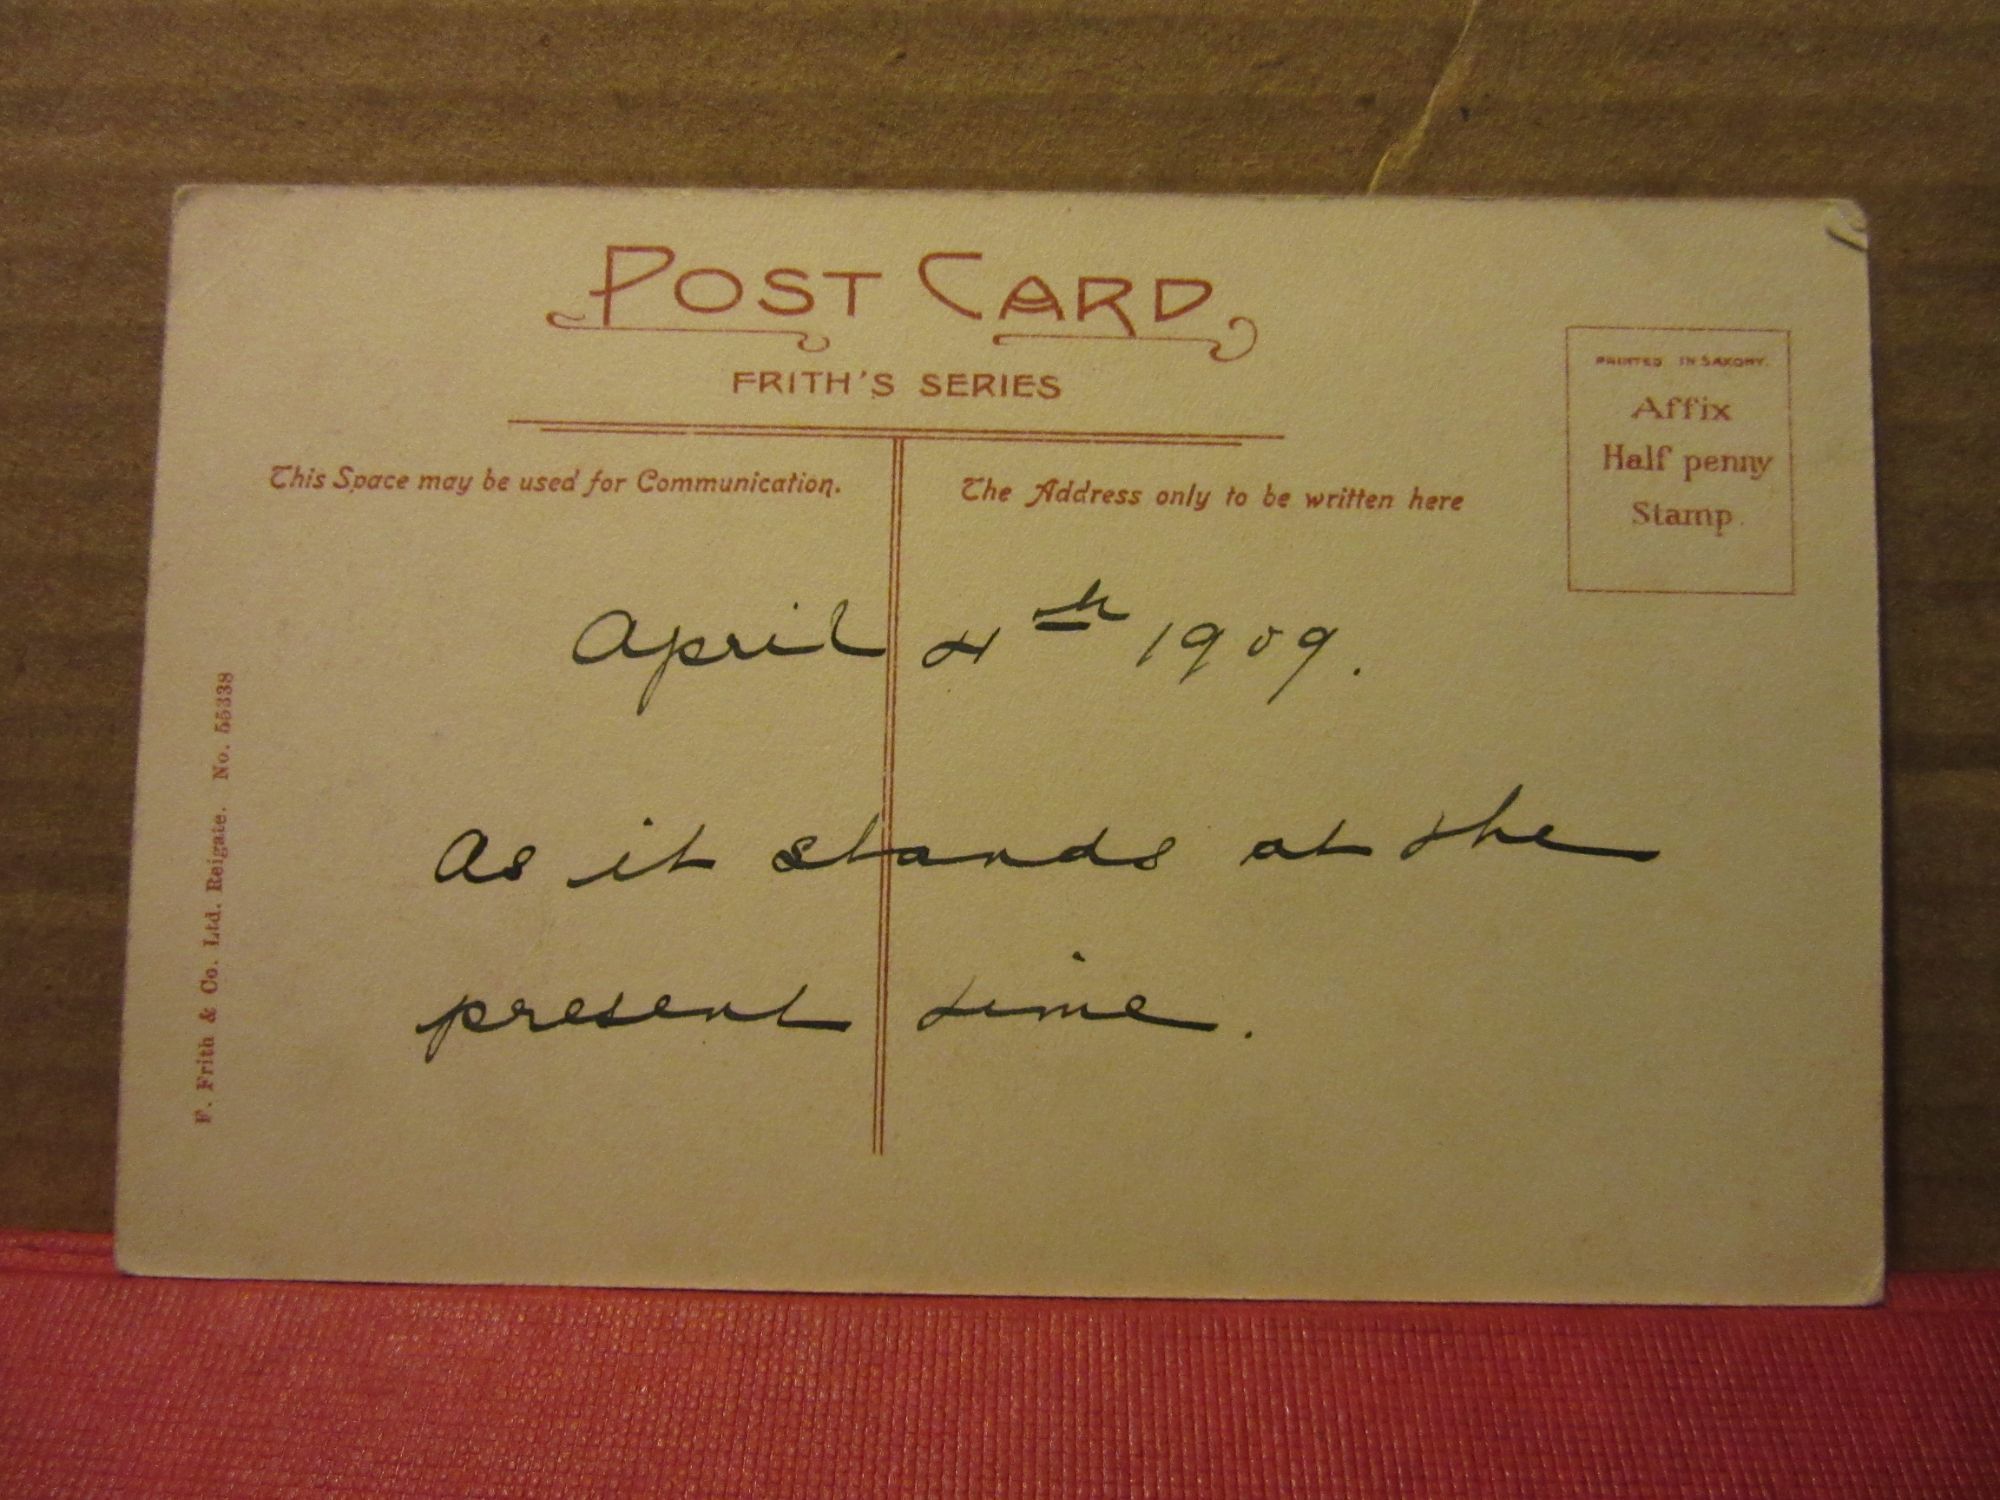 POST CARD
FRITH'S SERIES
This Space may be used for Communication.
The Address only to be written here
PRINTED IN SAXONY.
Affix
Half penny
Stamp
April 4th 1909.
As it stands at the
present time.
F. Frith & Co. Ltd. Reigate. No. 55338